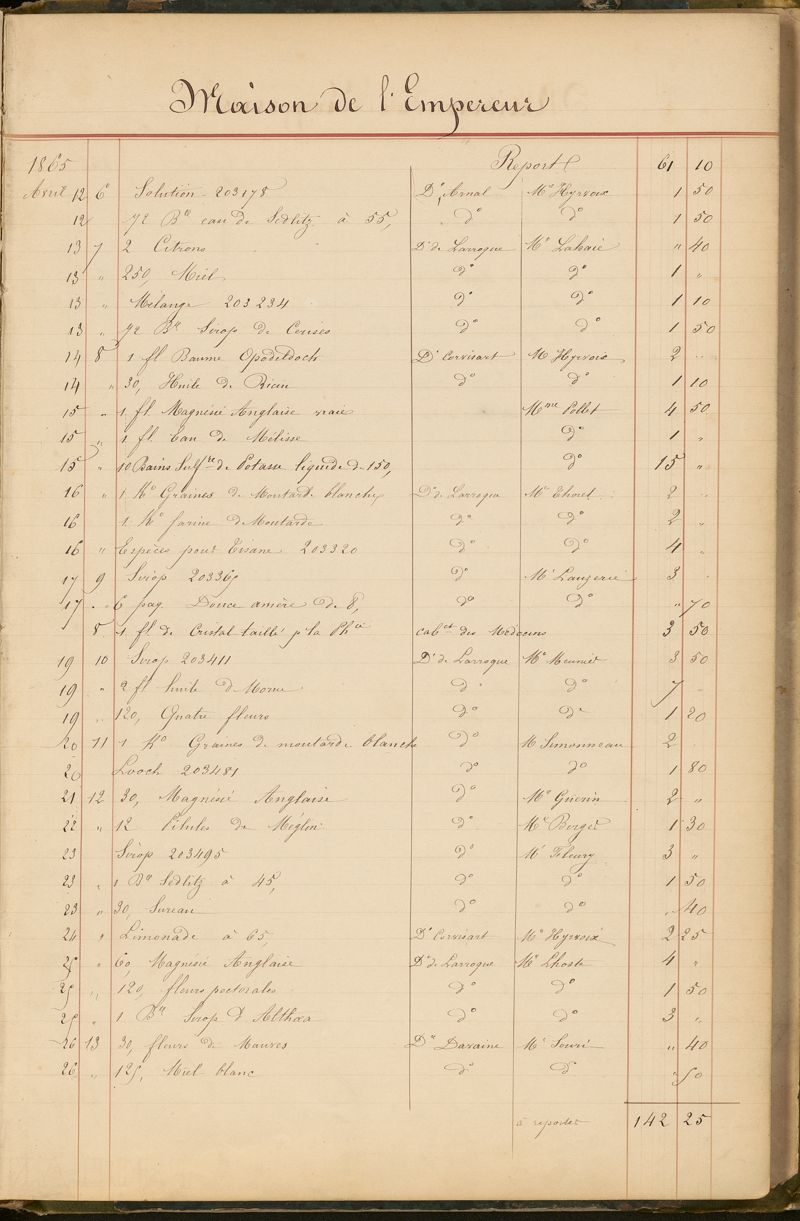 Maison de l'Empereur
1865 Report 61 10
Avril 12 6 Solution 203178 Dr Arnal Mr Hyrvoix 1 50
12 1/2 Blle eau de Sedlitz à 55, do do 1 50
13 7 2 Citrons Dr de Larroque Mr Lahaie " 40
13 " 250, Miel do do 1 "
13 " Mélange 203234 do do 1 10
13 " 1/2 Blle Sirop de Cerises do do 1 50
14 8 1 fl Baume Opodeldoch Dr Corvisart Mr Hyrvoix 2 "
14 " 30, Huile de Ricin do do 1 10
15 " 1 fl Magnésie Anglaise vraie Mme Pollet 4 50
15 " 1 fl Eau de Mélisse do 1 "
15 " 10 Bains Sulfre de Potasse liquide de 150, do 15 "
16 " 1 Ko Graines de Moutarde blanche Dr de Larroque Mr Thoret 2 "
16 1 Ko farine de Moutarde do do 2 "
16 " Espèces pour Tisane 203320 do do 4 "
17 9 Sirop 20336 do Mr Lauzerie 3
17 " 6 paq. Douce amère de 8, do do " 70
8 1 fl de Cristal taillé p la Phie cabet des Médecins 3 50
19 10 Sirop 203411 Dr de Larroque Mr Meunier 3 50
19 " 2 fl huile de Morue do do 7
19 " 120, Quatre fleurs do do 1 20
20 11 1 Ko Graines de moutarde blanche do Mr Simonneau 2
20 Looch 203481 do do 1 80
21 12 30, Magnésie Anglaise do Mr Guerin 2 "
22 " 12 Pilules de Méglin do Mr Berger 1 30
23 Sirop 203495 do Mr Fleury 3 "
23 " 1 Blle Sedlitz à 45, do do 1 50
23 " 30, Sureau do do " 40
24 " Limonade à 65, Dr Corvisart Mr Hyrvoix 2 25
25 " 60, Magnésie Anglaise Dr de Larroque Mr Lhoste 4 "
25 " 120, fleurs pectorales do do 1 50
25 " 1 Blle Sirop d'Althæa do do 3 "
26 13 30, fleurs de Mauves Dr Davaine Mr " 40
26 " 125, Miel blanc do do " 50
à reporter 142 25